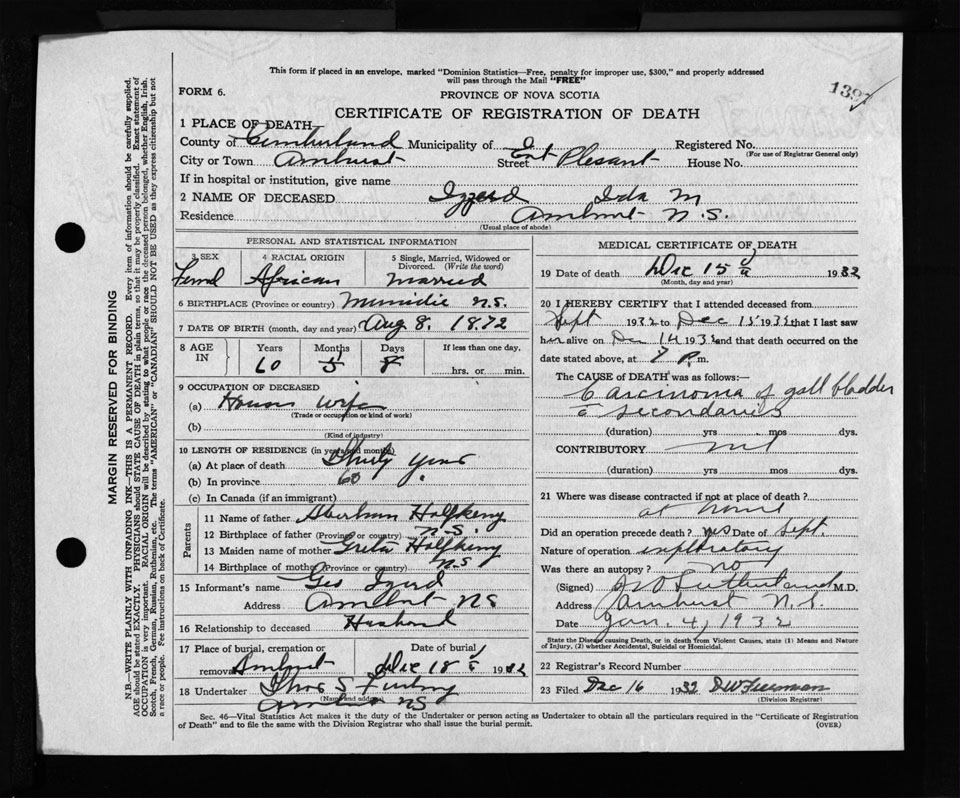 This form if placed in an envelope, marked "Dominion Statistics—Free, penalty for improper use, $300," and properly addressed
will pass through the Mail "FREE"
FORM 6.
PROVINCE OF NOVA SCOTIA
CERTIFICATE OF REGISTRATION OF DEATH
1 PLACE OF DEATH—
County of Cumberland Municipality of Registered No.
(For use of Registrar General only)
City or Town Amherst Street Plesant House No.
If in hospital or institution, give name
2 NAME OF DECEASED Izzerd Ida M
Residence Amherst N.S.
(Usual place of abode)
PERSONAL AND STATISTICAL INFORMATION
3 SEX 4 RACIAL ORIGIN 5 Single, Married, Widowed or
Divorced. (Write the word)
Femal African Married
6 BIRTHPLACE (Province or country) N.S.
7 DATE OF BIRTH (month, day and year) Aug 8. 1872
8 AGE IN Years Months Days If less than one day,
60 5 8 hrs. or min.
9 OCCUPATION OF DECEASED
(a) House Wife
(Trade or occupation or kind of work)
(b)
(Kind of industry)
10 LENGTH OF RESIDENCE (in years and months)
(a) At place of death Thirty Years
(b) In province 60
(c) In Canada (if an immigrant)
Parents
11 Name of father Halfkeny
12 Birthplace of father (Province or country) N.S.
13 Maiden name of mother Greta Halfkeny
14 Birthplace of mother (Province or country) N.S
15 Informant's name Geo Izzerd
Address Amherst NS
16 Relationship to deceased Husband
17 Place of burial, cremation or removal Date of burial
Amherst Dec 18 1932
18 Undertaker Thos S
(Name and address)
Amherst NS
MEDICAL CERTIFICATE OF DEATH
19 Date of death Dec 15 1932
(Month, day and year)
20 I HEREBY CERTIFY that I attended deceased from
Sept 1932 to Dec 15 1932 that I last saw
her alive on Dec 14 1932 and that death occurred on the
date stated above, at 7 P.m.
The CAUSE OF DEATH was as follows:
Carcinoma of gall bladder
c secondaries
(duration) yrs mos dys.
CONTRIBUTORY nil
(duration) yrs mos dys.
21 Where was disease contracted if not at place of death?
at home
Did an operation precede death? yes Date of Sept.
Nature of operation exploratory
Was there an autopsy? no
(Signed) Sutherland M.D.
Address Amherst N.S.
Date Jan. 4, 1932
State the Disease causing Death, or in death from Violent Causes, state (1) Means and Nature
of Injury, (2) whether Accidental, Suicidal or Homicidal.
22 Registrar's Record Number
23 Filed Dec 16 1932 DW Freeman
(Division Registrar)
Sec. 46—Vital Statistics Act makes it the duty of the Undertaker or person acting as Undertaker to obtain all the particulars required in the "Certificate of Registration
of Death" and to file the same with the Division Registrar who shall issue the burial permit.
(OVER)
MARGIN RESERVED FOR BINDING
N.B.—WRITE PLAINLY WITH UNFADING INK—THIS IS A PERMANENT RECORD. Every item of information should be carefully supplied.
AGE should be stated EXACTLY. PHYSICIANS should STATE CAUSE OF DEATH in plain terms, so that it may be properly classified. Exact statement of
OCCUPATION is very important. RACIAL ORIGIN will be described by stating to what people or race the deceased person belonged, whether English, Irish,
Scotch, French, German, Russian, Ruthenian, etc. The terms "AMERICAN" or "CANADIAN" SHOULD NOT BE USED as they express citizenship but not
a race or people. Fee instructions on back of Certificate.